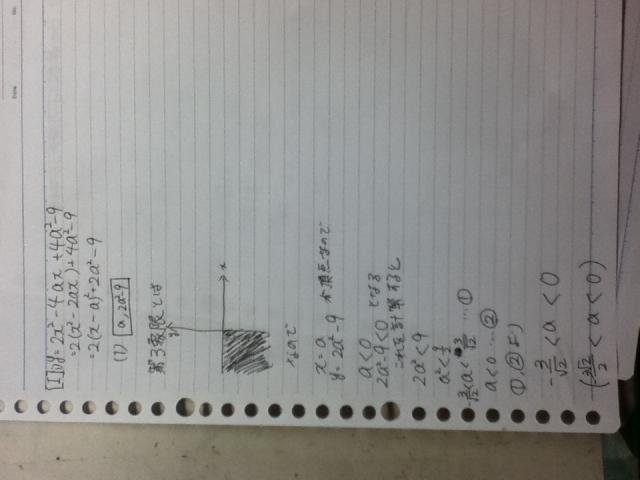 [1](1)y=2x²-4ax+4a²-9
=2(x²-2ax)+4a²-9
=2(x-a)²+2a²-9
(1) a, 2a²-9
第3象限とは
x
なので
x=a
y=2a²-9 が頂点なので
a<0
2a²-9<0 となる
これを計算すると
2a²<9
a²<9/2
a<0 …②
①,②より
-3/√2<a<0